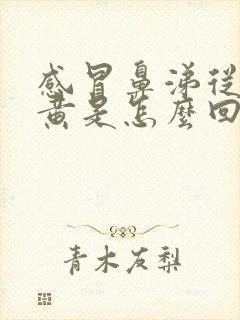 感冒鼻涕從
黃是怎麼回
青木友梨